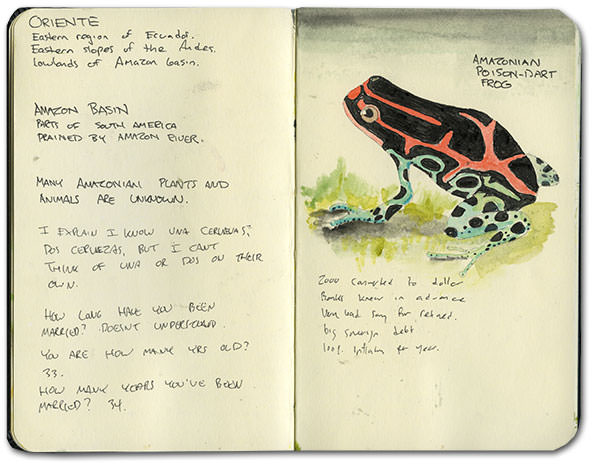 ORIENTE
Eastern region of Ecuador.
Eastern slopes of the Andes.
Lowlands of Amazon basin.
AMAZON BASIN
PARTS OF SOUTH AMERICA
DRAINED BY AMAZON RIVER.
MANY AMAZONIAN PLANTS AND
ANIMALS ARE UNKNOWN.
I EXPLAIN I KNOW UNA
DOS CERVEZAS, BUT I CAN'T
THINK OF UNA OR DOS ON THEIR
OWN.
HOW LONG HAVE YOU BEEN
MARRIED? DOESN'T UNDERSTAND.
YOU ARE HOW MANY YRS OLD?
33.
HOW MANY YEARS YOU'VE BEEN
MARRIED? 34.
AMAZONIAN
POISON-DART
FROG
2000 converted to dollar
Banks knew in advance
Very bad for retired.
big sovereign debt
100% inflation per year.